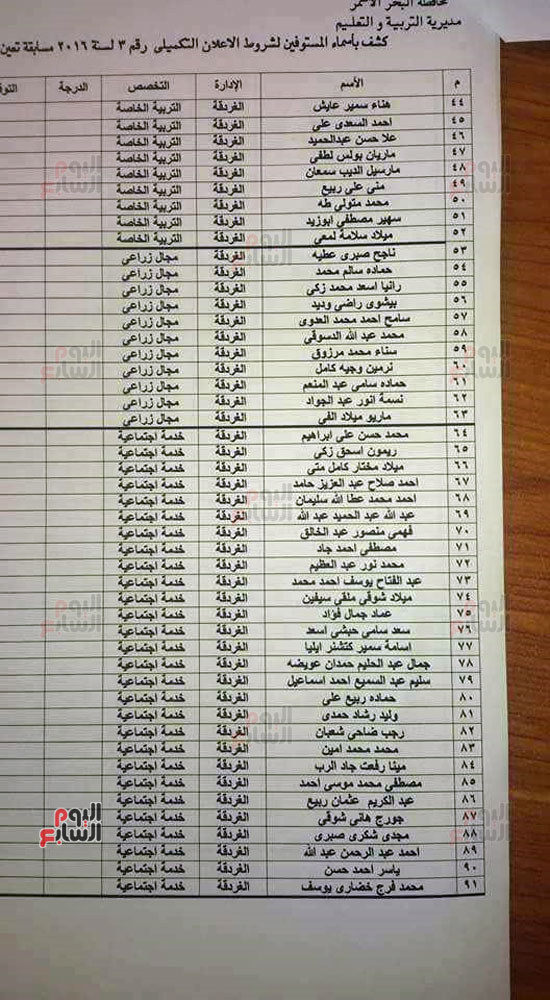 محافظة البحر الأحمر
مديرية التربية و التعليم
كشف بأسماء المستوفين لشروط الاعلان التكميلى رقم ٣ لسنة ٢٠١٦ مسابقة تعين
م الأسم الإدارة التخصص الدرجة
٤٤ هناء سمير عايش الغردقة التربية الخاصة
٤٥ احمد السعدى على الغردقة التربية الخاصة
٤٦ علا حسن عبدالحميد الغردقة التربية الخاصة
٤٧ ماريان بولس لطفى الغردقة التربية الخاصة
٤٨ مارسيل الديب سمعان الغردقة التربية الخاصة
٤٩ منى على ربيع الغردقة التربية الخاصة
٥٠ محمد متولى طه الغردقة التربية الخاصة
٥١ سهير مصطفى ابوزيد الغردقة التربية الخاصة
٥٢ ميلاد سلامة لمعى الغردقة التربية الخاصة
٥٣ ناجح صبرى عطيه الغردقة مجال زراعي
٥٤ حماده سالم محمد الغردقة مجال زراعي
٥٥ رانيا اسعد محمد زكى الغردقة مجال زراعي
٥٦ بيشوى راضى وديد الغردقة مجال زراعي
٥٧ سامح احمد محمد العدوى الغردقة مجال زراعي
٥٨ محمد عبد الله الدسوقى الغردقة مجال زراعي
٥٩ سناء محمد مرزوق الغردقة مجال زراعي
٦٠ نرمين وجيه كامل الغردقة مجال زراعي
٦١ حماده سامى عبد المنعم الغردقة مجال زراعي
٦٢ نسمة انور عبد الجواد الغردقة مجال زراعي
٦٣ ماريو ميلاد الفى الغردقة مجال زراعي
٦٤ محمد حسن على ابراهيم الغردقة خدمة اجتماعية
٦٥ ريمون اسحق زكى الغردقة خدمة اجتماعية
٦٦ ميلاد مختار كامل متى الغردقة خدمة اجتماعية
٦٧ احمد صلاح عبد العزيز حامد الغردقة خدمة اجتماعية
٦٨ احمد محمد عطا الله سليمان الغردقة خدمة اجتماعية
٦٩ عبد الله عبد الحميد عبد الله الغردقة خدمة اجتماعية
٧٠ فهمى منصور عبد الخالق الغردقة خدمة اجتماعية
٧١ مصطفى احمد جاد الغردقة خدمة اجتماعية
٧٢ محمد نور عبد العظيم الغردقة خدمة اجتماعية
٧٣ عبد الفتاح يوسف احمد محمد الغردقة خدمة اجتماعية
٧٤ ميلاد شوقى ملقى سيفين الغردقة خدمة اجتماعية
٧٥ عماد جمال فؤاد الغردقة خدمة اجتماعية
٧٦ سعد سامى حبشى اسعد الغردقة خدمة اجتماعية
٧٧ اسامة سمير كتشنر ايليا الغردقة خدمة اجتماعية
٧٨ جمال عبد الحليم حمدان عويضه الغردقة خدمة اجتماعية
٧٩ سليم عبد السميع احمد اسماعيل الغردقة خدمة اجتماعية
٨٠ حماده ربيع على الغردقة خدمة اجتماعية
٨١ وليد رشاد حمدى الغردقة خدمة اجتماعية
٨٢ رجب ضاحى شعبان الغردقة خدمة اجتماعية
٨٣ محمد محمد امين الغردقة خدمة اجتماعية
٨٤ مينا رفعت جاد الرب الغردقة خدمة اجتماعية
٨٥ مصطفى محمد موسى احمد الغردقة خدمة اجتماعية
٨٦ عبد الكريم عثمان ربيع الغردقة خدمة اجتماعية
٨٧ جورج هانى شوقى الغردقة خدمة اجتماعية
٨٨ مجدى شكرى صبرى الغردقة خدمة اجتماعية
٨٩ احمد عبد الرحمن عبد الله الغردقة خدمة اجتماعية
٩٠ ياسر احمد حسن الغردقة خدمة اجتماعية
٩١ محمد فرج خضارى يوسف الغردقة خدمة اجتماعية
اليوم السابع